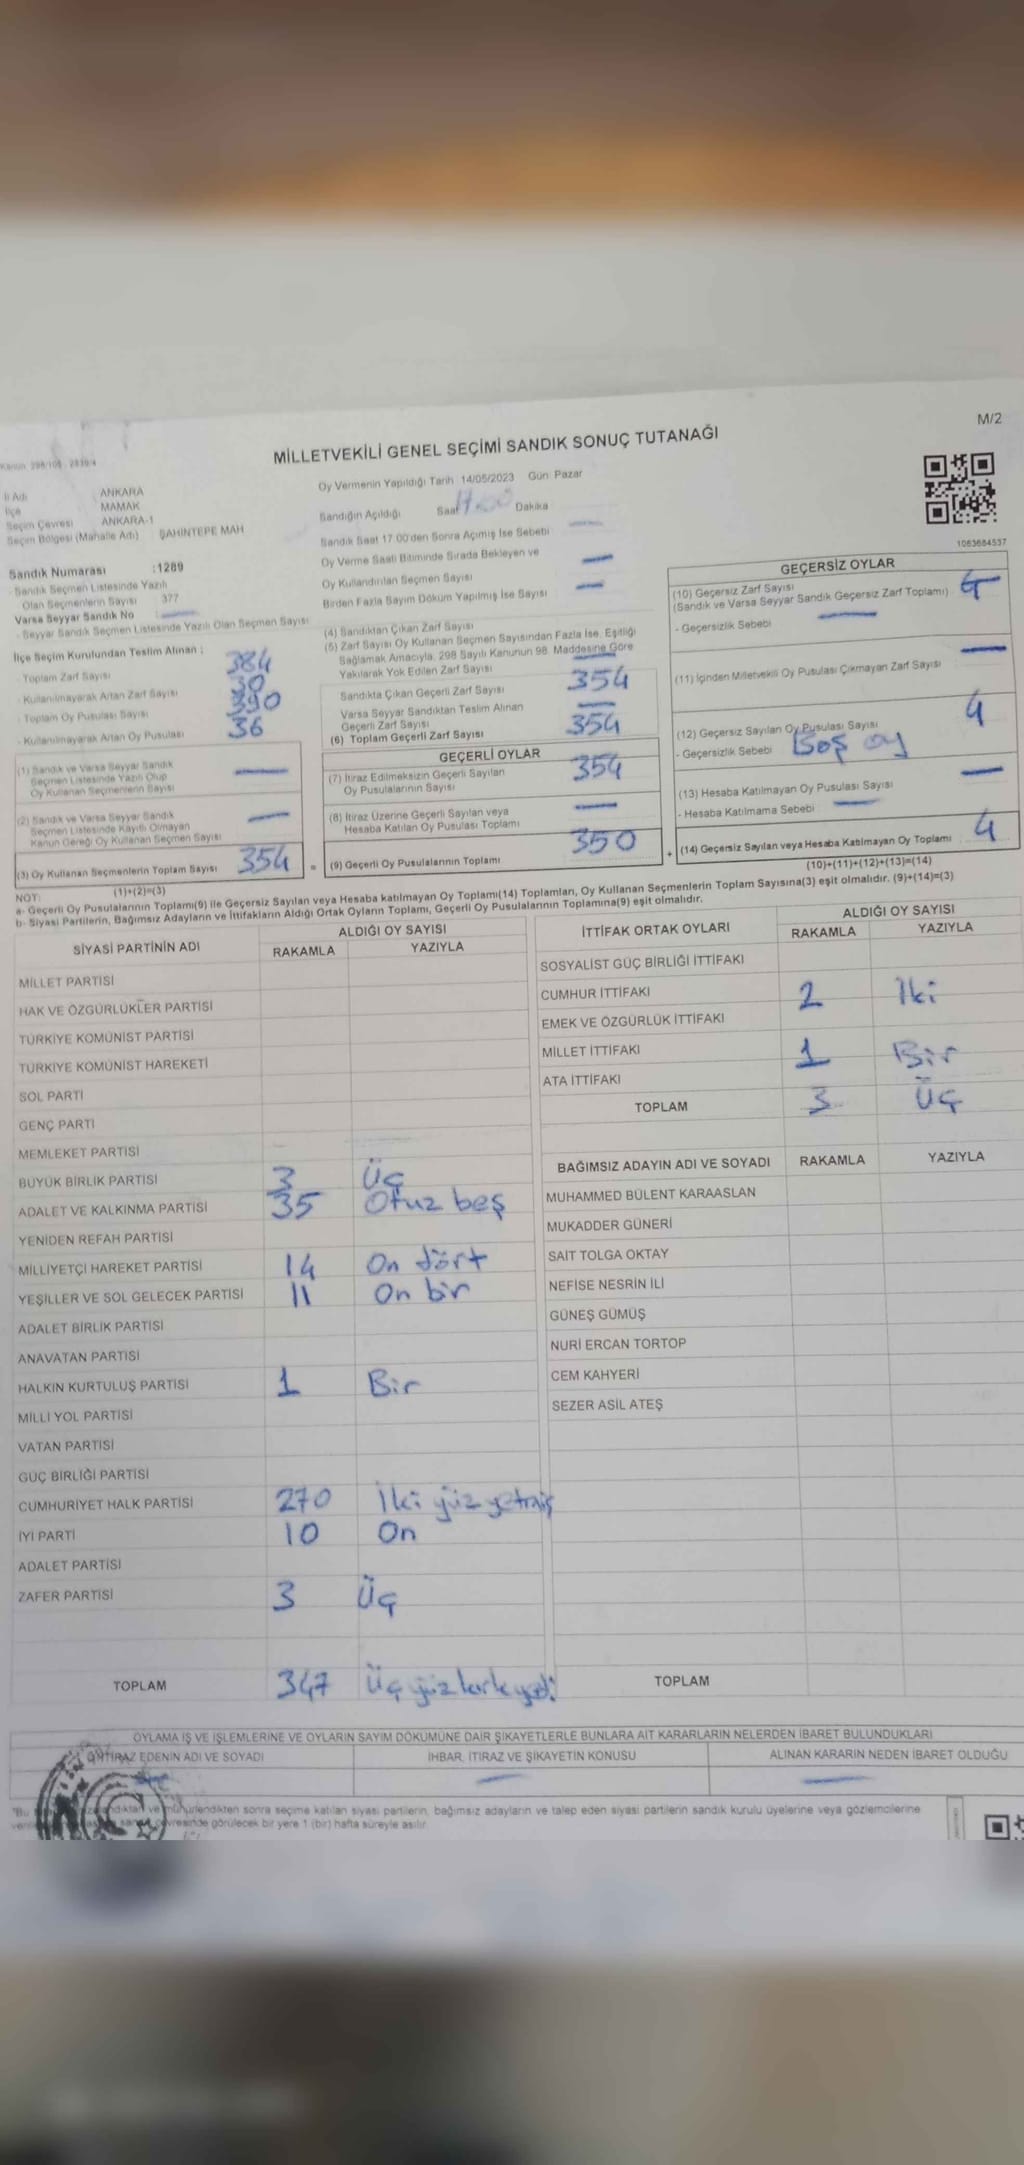 M/2
MİLLETVEKİLİ GENEL SEÇİMİ SANDIK SONUÇ TUTANAĞI
İl Adı ANKARA
İlçe MAMAK
Seçim Çevresi ANKARA-1
Seçim Bölgesi (Mahalle Adı) ŞAHİNTEPE MAH
Sandık Numarası :1289
- Sandık Seçmen Listesinde Yazılı
Olan Seçmenlerin Sayısı 377
Varsa Seyyar Sandık No :
- Seyyar Sandık Seçmen Listesinde Yazılı Olan Seçmen Sayısı
İlçe Seçim Kurulundan Teslim Alınan :
- Toplam Zarf Sayısı 384
- Kullanılmayarak Artan Zarf Sayısı 30
- Toplam Oy Pusulası Sayısı 390
- Kullanılmayarak Artan Oy Pusulası 36
(1) Sandık ve Varsa Seyyar Sandık
Seçmen Listesinde Yazılı Olup
Oy Kullanan Seçmenlerin Sayısı
(2) Sandık ve Varsa Seyyar Sandık
Seçmen Listesinde Kayıtlı Olmayan
Kanun Gereği Oy Kullanan Seçmen Sayısı
(3) Oy Kullanan Seçmenlerin Toplam Sayısı 354 =
(1)+(2)=(3)
Oy Vermenin Yapıldığı Tarih 14/05/2023 Gün Pazar
Sandığın Açıldığı Saat 17:00 Dakika
Sandık Saat 17.00'den Sonra Açımış İse Sebebi
Oy Verme Saati Bitiminde Sırada Bekleyen ve
Oy Kullandırılan Seçmen Sayısı
Birden Fazla Sayım Döküm Yapılmış İse Sayısı
(4) Sandıktan Çıkan Zarf Sayısı
(5) Zarf Sayısı Oy Kullanan Seçmen Sayısından Fazla İse, Eşitliği
Sağlamak Amacıyla, 298 Sayılı Kanunun 98. Maddesine Göre
Yakılarak Yok Edilen Zarf Sayısı
Sandıkta Çıkan Geçerli Zarf Sayısı 354
Varsa Seyyar Sandıktan Teslim Alınan
Geçerli Zarf Sayısı
(6) Toplam Geçerli Zarf Sayısı 354
GEÇERLİ OYLAR
(7) İtiraz Edilmeksizin Geçerli Sayılan
Oy Pusulalarının Sayısı 354
(8) İtiraz Üzerine Geçerli Sayılan veya
Hesaba Katılan Oy Pusulası Toplamı
(9) Geçerli Oy Pusulalarının Toplamı 350 +
1063684537
GEÇERSİZ OYLAR
(10) Geçersiz Zarf Sayısı
(Sandık ve Varsa Seyyar Sandık Geçersiz Zarf Toplamı)
- Geçersizlik Sebebi
(11) İçinden Milletvekili Oy Pusulası Çıkmayan Zarf Sayısı
(12) Geçersiz Sayılan Oy Pusulası Sayısı 4
- Geçersizlik Sebebi Boş oy
(13) Hesaba Katılmayan Oy Pusulası Sayısı
- Hesaba Katılmama Sebebi
(14) Geçersiz Sayılan veya Hesaba Katılmayan Oy Toplamı 4
(10)+(11)+(12)+(13)=(14)
NOT:
a- Geçerli Oy Pusulalarının Toplamı(9) ile Geçersiz Sayılan veya Hesaba katılmayan Oy Toplamı(14) Toplamları, Oy Kullanan Seçmenlerin Toplam Sayısına(3) eşit olmalıdır. (9)+(14)=(3)
b- Siyasi Partilerin, Bağımsız Adayların ve İttifakların Aldığı Ortak Oyların Toplamı, Geçerli Oy Pusulalarının Toplamına(9) eşit olmalıdır.
SİYASİ PARTİNİN ADI ALDIĞI OY SAYISI
RAKAMLA YAZIYLA
MİLLET PARTİSİ
HAK VE ÖZGÜRLÜKLER PARTİSİ
TÜRKİYE KOMÜNİST PARTİSİ
TÜRKİYE KOMÜNİST HAREKETİ
SOL PARTİ
GENÇ PARTİ
MEMLEKET PARTİSİ
BÜYÜK BİRLİK PARTİSİ 3 Üç
ADALET VE KALKINMA PARTİSİ 35 Otuz beş
YENİDEN REFAH PARTİSİ
MİLLİYETÇİ HAREKET PARTİSİ 14 On dört
YEŞİLLER VE SOL GELECEK PARTİSİ 11 On bir
ADALET BİRLİK PARTİSİ
ANAVATAN PARTİSİ
HALKIN KURTULUŞ PARTİSİ 1 Bir
MİLLİ YOL PARTİSİ
VATAN PARTİSİ
GÜÇ BİRLİĞİ PARTİSİ
CUMHURİYET HALK PARTİSİ 270 İki yüz yetmiş
İYİ PARTİ 10 On
ADALET PARTİSİ
ZAFER PARTİSİ 3 Üç
TOPLAM 347 Üç yüz kırk yedi
İTTİFAK ORTAK OYLARI ALDIĞI OY SAYISI
RAKAMLA YAZIYLA
SOSYALİST GÜÇ BİRLİĞİ İTTİFAKI
CUMHUR İTTİFAKI 2 İki
EMEK VE ÖZGÜRLÜK İTTİFAKI
MİLLET İTTİFAKI 1 Bir
ATA İTTİFAKI
TOPLAM 3 Üç
BAĞIMSIZ ADAYIN ADI VE SOYADI RAKAMLA YAZIYLA
MUHAMMED BÜLENT KARAASLAN
MUKADDER GÜNERİ
SAİT TOLGA OKTAY
NEFİSE NESRİN İLİ
GÜNEŞ GÜMÜŞ
NURİ ERCAN TORTOP
CEM KAHYERİ
SEZER ASİL ATEŞ
TOPLAM
OYLAMA İŞ VE İŞLEMLERİNE VE OYLARIN SAYIM DÖKÜMÜNE DAİR ŞİKAYETLERLE BUNLARA AİT KARARLARIN NELERDEN İBARET BULUNDUKLARI
İTİRAZ EDENİN ADI VE SOYADI İHBAR, İTİRAZ VE ŞİKAYETİN KONUSU ALINAN KARARIN NEDEN İBARET OLDUĞU
"Bu mühürlendikten sonra seçime katılan siyasi partilerin, bağımsız adayların ve talep eden siyasi partilerin sandık kurulu üyelerine veya gözlemcilerine
çevresinde görülecek bir yere 1 (bir) hafta süreyle asılır.